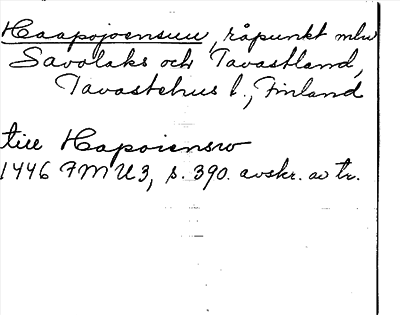 Haapojoensuu, råpunkt mlw
Savolaks och Tavastland,
Tavastehus l., Finland
till Hapoiensw
1446 FMU 3, s. 390. avskr. av tr.